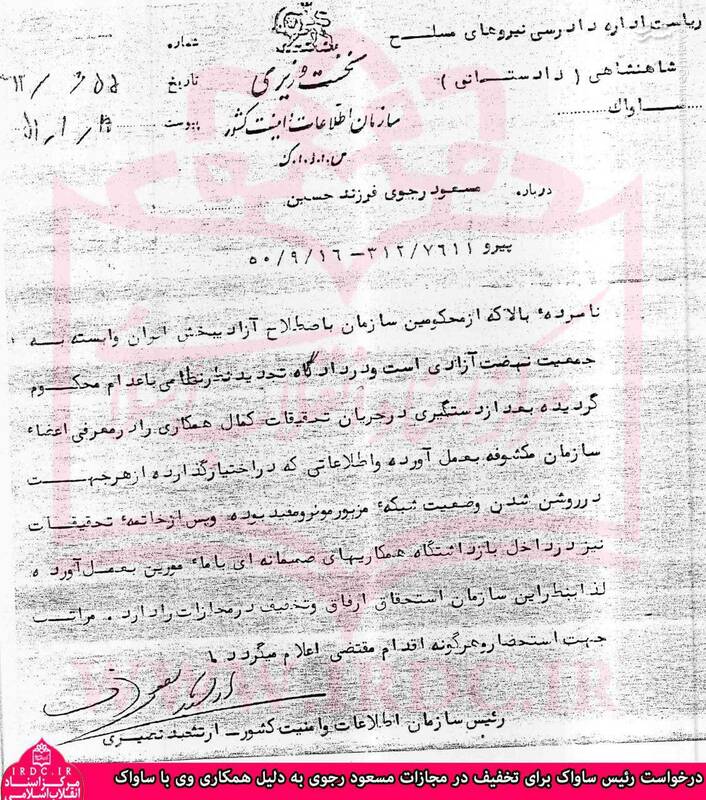 ریاست اداره دادرسی نیروهای مسلح
شاهنشاهی (دادستانی)
ساواک
نخست وزیری
سازمان اطلاعات و امنیت کشور
شماره
تاریخ
پیوست
درباره مسعود رجوی فرزند حسین
پیرو ۳۱۲/۷۶۱۱ – ۵۰/۹/۱۶
نامبرده بالا که از محکومین سازمان باصطلاح آزادیبخش ایران وابسته به
جمعیت نهضت آزادی است و در دادگاه تجدید نظر نظامی باعدام محکوم
گردیده بعد از دستگیری در جریان تحقیقات کمال همکاری را در معرفی اعضاء
سازمان مکشوفه بعمل آورده و اطلاعاتی که در اختیار گذارده از هر جهت
در روشن شدن وضعیت شبکه مزبور موثر و مفید بوده و پس از خاتمه تحقیقات
نیز در داخل بازداشتگاه همکاریهای صمیمانه ای با مامورین بعمل آورده
لذا بنظر این سازمان استحقاق ارفاق و تخفیف در مجازات را دارد. مراتب
جهت استحضار و هرگونه اقدام مقتضی اعلام میگردد.
رئیس سازمان اطلاعات و امنیت کشور – ارتشبد نصیری
WWW.IRDC.IR
درخواست رئیس ساواک برای تخفیف در مجازات مسعود رجوی به دلیل همکاری وی با ساواک
IRDC.IR
مرکز اسناد
انقلاب اسلامی